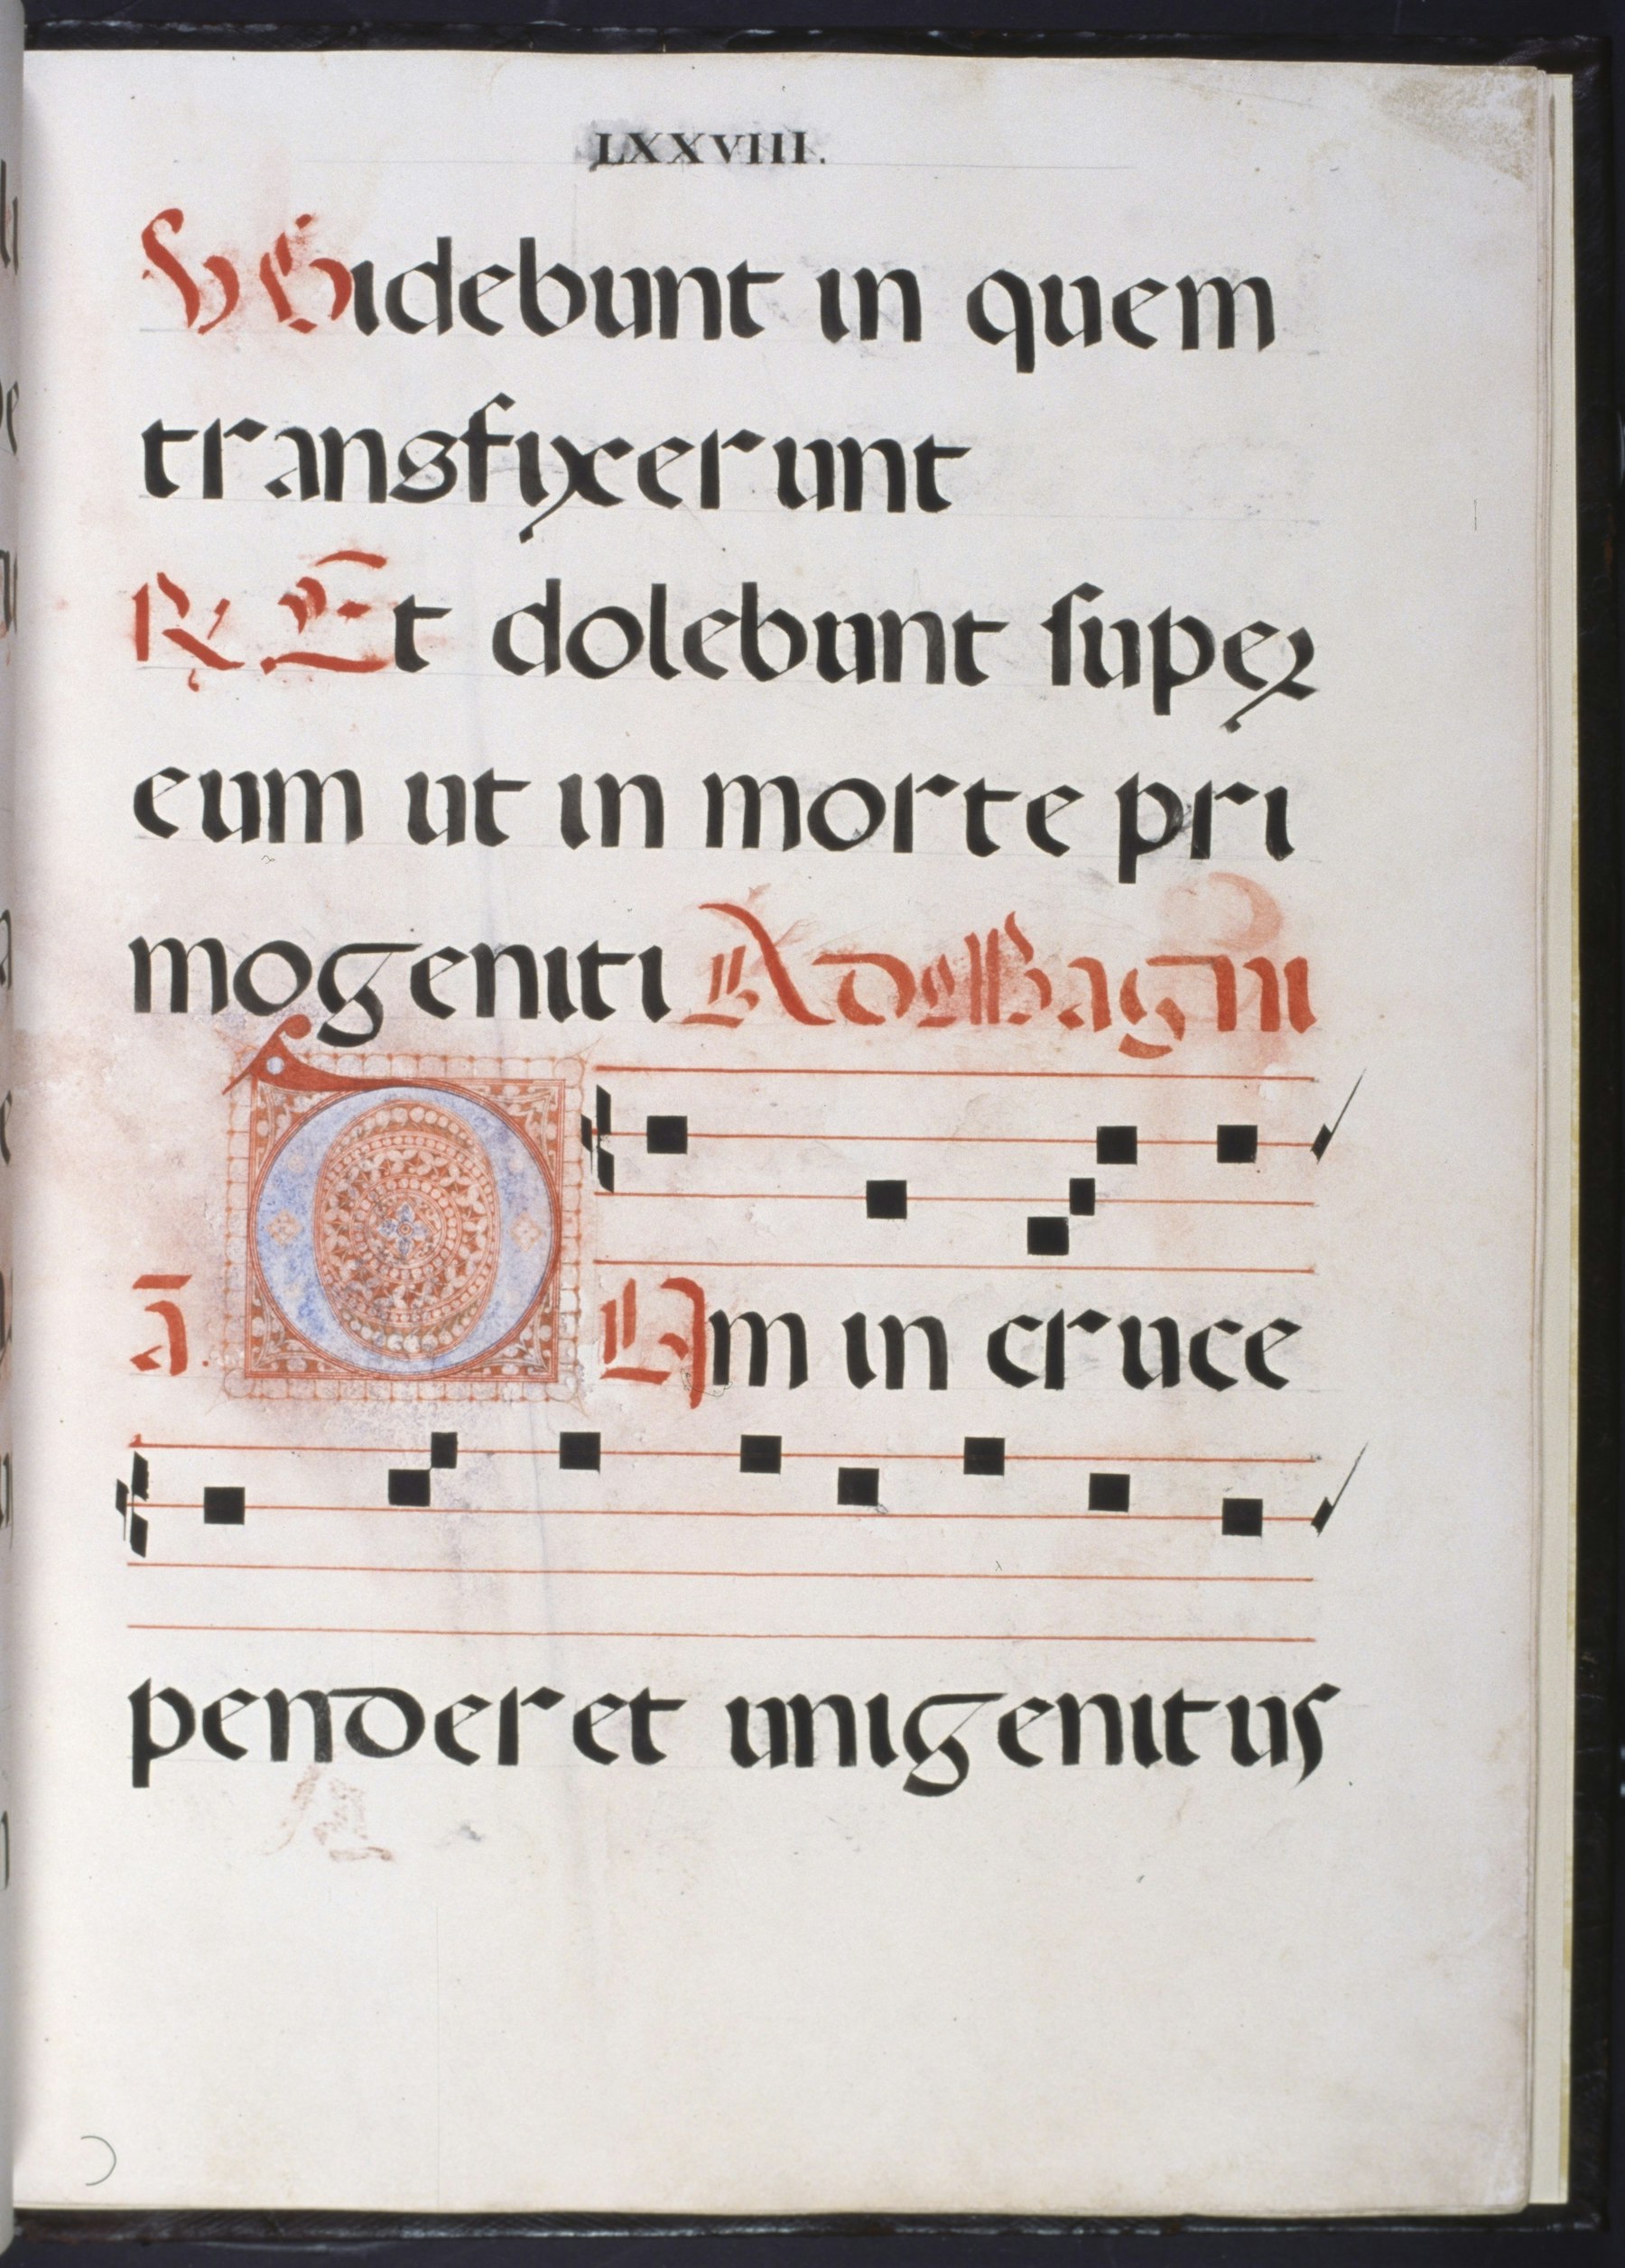 LXXVIII.
V Videbunt in quem
transfixerunt
R Et dolebunt ſuper
eum ut in morte pri
mogeniti Ad Magni
ā. Cum in cruce
penderet unigenitus